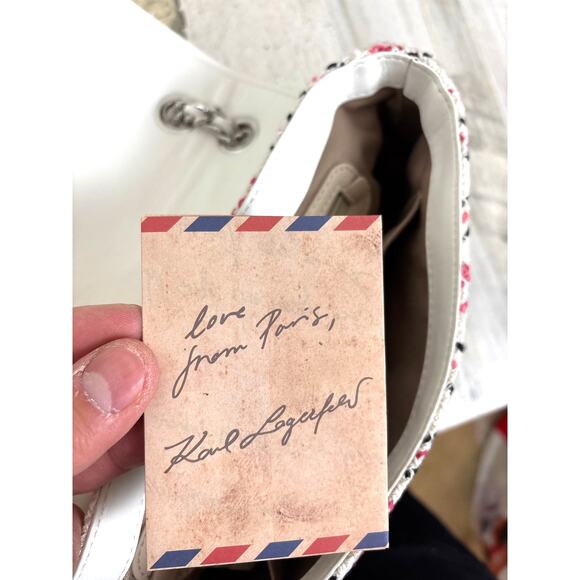 love
from Paris,
Karl Lagerfeld